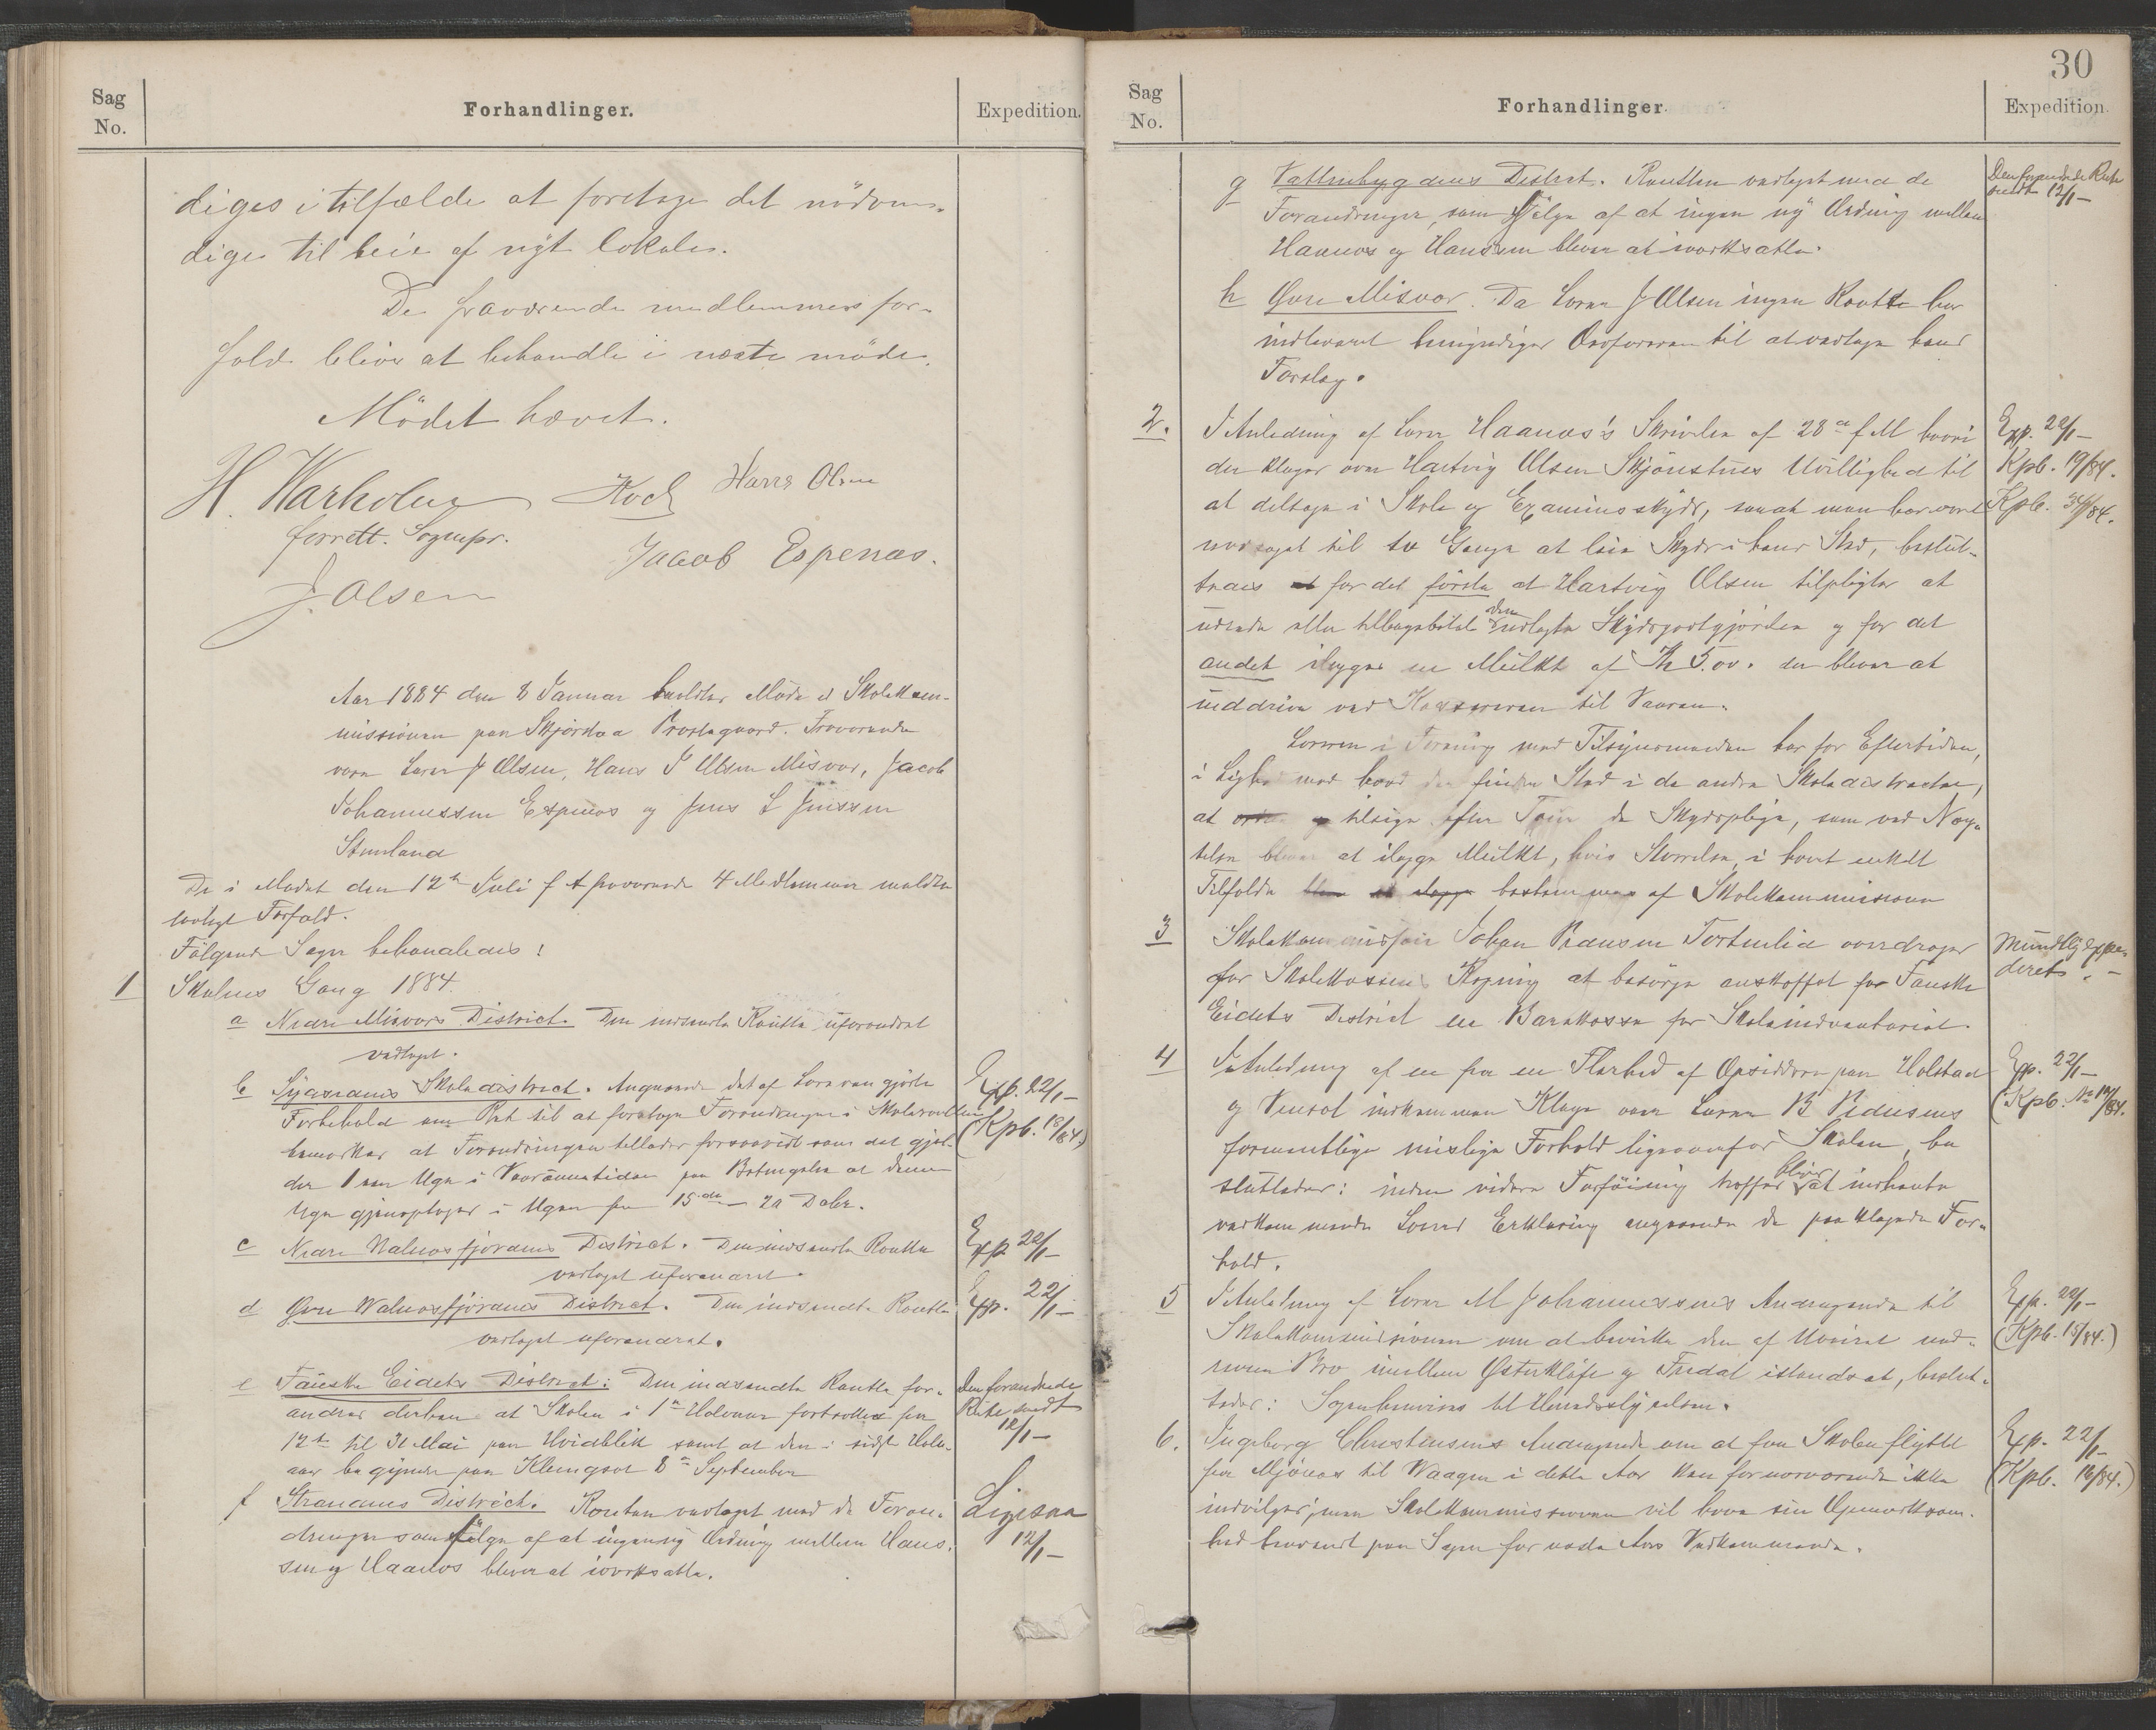 Sag
No.
Forhandlinger.
Expedition.
diges i tilfælde at foretage det nödven-
dige til leie af nyt lokale.
De fraværende medlemmers for-
fald bliver at behandle i næste möde.
Mödet hævet.
H. Warholm Koch Hans Olsen
forrett. Sognepr.
Jacob Espenæs.
J. Olsen
Aar 1884 den 8 Januar holdtes Möde i Skolekom-
missionen paa Skjerstad Præstegaard. Fraværende
vare Lærer J Olsen, Hans J Olsen Misvær, Jacob
Johannessen Espenæs og Jens L Jenssen
Storeland
De i Mödet den 12te Juli f A fraværende 4 Medlemmer meldte
lovligt Forfald.
Fölgende Sager behandledes:
1 Skolens Gang 1884.
a Nedre Misvær District. Den indsendte Routte uforandret
vedtaget.
b Skoledistrict. Angaaende det af Læreren gjorte
Exp. 22/1 —
Forbehold om Ret til at foretage Forandringer i Skolerouten
(Kpb. 18/84.)
bemærkes at Forandringen tillades forsaavidt som det gjæl-
der 1 Uge i Vaaronnetiden paa Betingelse at denne
Uge gjenoptages i Ugen fra 15de – 20 Decbr.
c Nedre Valnesfjordens District. Den indsendte Routte
Exp 22/1 —
vedtaget uforandret.
d Øvre Walnesfjordens District. Den indsendte Routte
Exp. 22/1 —
vedtaget uforandret.
e Fauske Eidets District: Den indsendte Routte for-
Den forandrede
andres derhen at Skolen i 1ste Halvaar fortsættes fra
Rute sendt
12te til 31 Mai paa Hvidblik samt at den i sidste Halv-
12/1 —
aar begynder paa Klungset 8de September
f Strandens District. Routen vedtaget med de Foran-
Ligesaa
dringer som fölge af at ingen ny Ordning mellem Hans-
12/1 —
sen og Haanes bliver at iværksætte.
30
Sag
No.
Forhandlinger.
Expedition.
g Vattenbygdens District. Routten vedtaget med de
Den forandrede Rute
sendt 12/1 —
Forandringer, som fölge af at ingen ny Ordning mellem
Haanes og Hanssen bliver at iværksætte.
h Øvre Misvær. Da Lærer J Olsen ingen Routte har
indleveret bemyndiges Ordföreren til at vedtage hans
Forslag.
2. I Anledning af Lærer Haanes's Skrivelse af 28de f M hvori
Exp. 22/1 —
der klages over Hartvig Olsen Skjönstues Uvillighed til
Kpb. 19/84.
at deltage i Skole og Examensskyds, saa at man har været
Kpb. 34/84.
nödsaget til to Gange at leie Skyds i hans Sted, beslut-
tedes for det förste at Hartvig Olsen tilpligtes at
udrede eller tilbagebetale den udlagte Skydsgodtgjörelse og for det
andet ilægges en Mulkt af Kr 5.00. der bliver at
inddrive ved Kassereren til
Læreren i Forening med Tilsynsmanden har for Eftertiden,
i Lighed med hvad der finder Sted i de andre Skoledistricter,
at tilsige efter Tour de Skydspligtige, som ved Næg-
telse bliver at ilægge Mulkt, hvis Störrelse i hvert enkelt
Tilfælde bestemmes af Skolekommissionen
3 Johan Fortenlid overdrages
Mundtlig Expe-
for Skolekassens Regning at besörge anskaffet for Fauske
deret. —
Eidets District en Bærekasse for Skoleinventariet.
4 I Anledning af en fra en Flerhed af Opsiddere paa Holstad
Exp. 22/1 —
og Venset indkommen Klage over Lærer B Pedersens
(Kpb. No 14/84.
formentlige mislige Forhold ligeoverfor Skolen, be
sluttedes: inden videre Forföining træffes bliver at indhente
vedkommende Lærers Erklæring angaaende de paaklagede For-
hold.
5 I Anledning af Lærer M Johannessens Andragende til
Exp. 22/1 —
Skolekommissionen om at bevirke den af Uveiret ned-
(Kpb. 15/84.)
revne Bro imellem Østerklöft og Fredal istandsat, beslut-
tedes: Sagen henvises til Herredsstyrelsen.
6. Ingeborg Christensens Andragende om at faa Skolen flyttet
Exp. 22/1 —
fra Mjönes til Waagen i dette Aar kan for nærværende ikke
(Kpb. 16/84.)
indvilges; men Skolekommissionen vil have sin Opmærksom-
hed henvendt paa Sagen for næste Aars Vedkommende.